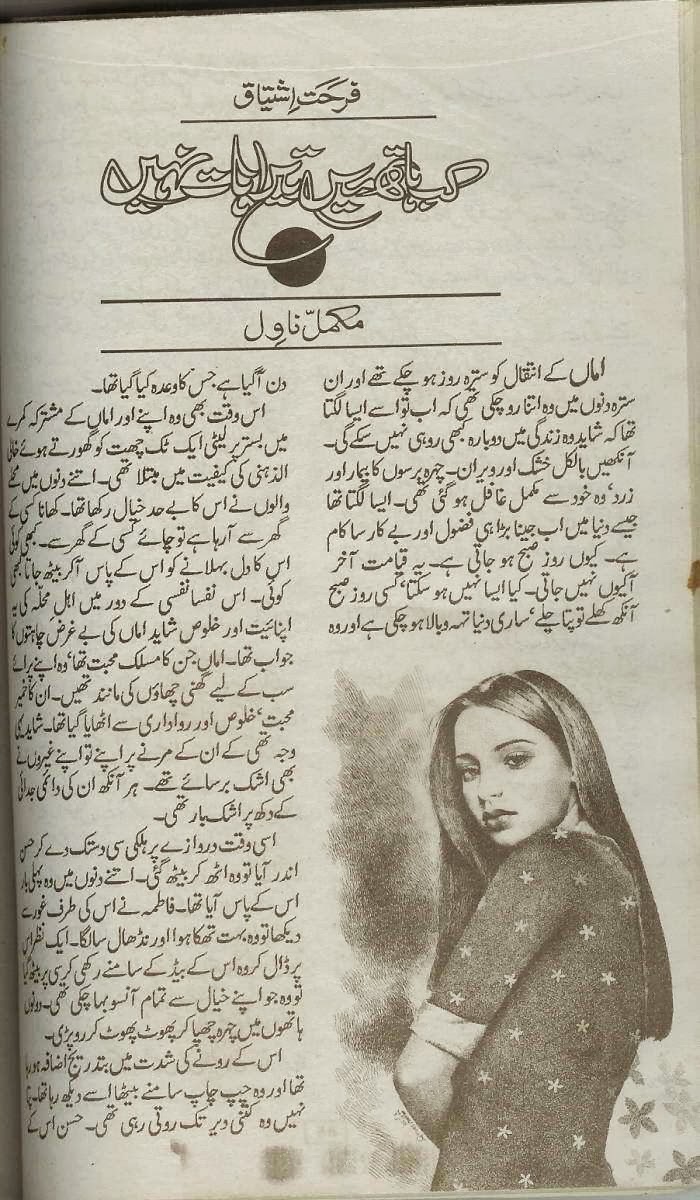 فرحت اشتیاق
کب ہاتھ میں تیرا ہات نہیں
مکمل ناول
اماں کے انتقال کو سترہ روز ہو چکے تھے اور ان
سترہ دنوں میں وہ اتنا رو چکی تھی کہ اب تو اسے ایسا لگتا
تھا کہ شاید وہ زندگی میں دوبارہ کبھی رو ہی نہیں سکے گی۔
آنکھیں بالکل خشک اور ویران۔ چہرہ برسوں کا بیمار اور
زرد، وہ خود سے مکمل غافل ہو گئی تھی۔ ایسا لگتا تھا
جیسے دنیا میں اب جینا بڑا ہی فضول اور بے کار سا کام
ہے۔ کیوں روز صبح ہو جاتی ہے۔ یہ قیامت آخر
آ کیوں نہیں جاتی۔ کیا ایسا نہیں ہو سکتا، کسی روز صبح
آنکھ کھلے تو پتا چلے، ساری دنیا تہہ و بالا ہو چکی ہے اور وہ
دن آ گیا ہے جس کا وعدہ کیا گیا تھا۔
اس وقت بھی وہ اپنے اور اماں کے مشترکہ کمرے
میں بستر پر لیٹی ایک ٹک چھت کو گھورتے ہوئے خالی
الذہنی کی کیفیت میں مبتلا تھی۔ اتنے دنوں میں محلے
والوں نے اس کا بے حد خیال رکھا تھا۔ کھانا کسی کے
گھر سے آ رہا ہے تو چائے کسی کے گھر سے۔ کبھی کوئی
اس کا دل بہلانے کو اس کے پاس آ کر بیٹھ جاتا کبھی
کوئی۔ اس نفسا نفسی کے دور میں اہل محلہ کی یہ
اپنائیت اور خلوص شاید اماں کی بے غرض چاہتوں کا
جواب تھا۔ اماں جن کا مسلک محبت تھا، وہ اپنے پرائے
سب کے لیے گھنی چھاؤں کی مانند تھیں۔ ان کا خمیر
محبت، خلوص اور رواداری سے اٹھایا گیا تھا۔ شاید یہی
وجہ تھی کے ان کے مرنے پر اپنے تو اپنے غیروں نے
بھی اشک برسائے تھے۔ ہر آنکھ ان کی دائمی جدائی
کے دکھ پر اشک بار تھی۔
اسی وقت دروازے پر ہلکی سی دستک دے کر حسن
اندر آیا تو وہ اٹھ کر بیٹھ گئی۔ اتنے دنوں میں وہ پہلی بار
اس کے پاس آیا تھا۔ فاطمہ نے اس کی طرف غور سے
دیکھا تو وہ بہت تھکا ہوا اور نڈھال سا لگا۔ ایک نظر اس
پر ڈال کر وہ اس کے بیڈ کے سامنے رکھی کرسی پر بیٹھ گیا
تو وہ جو اپنے خیال سے تمام آنسو بہا چکی تھی۔ دونوں
ہاتھوں میں چہرہ چھپا کر پھوٹ پھوٹ کر رو پڑی۔
اس کے رونے کی شدت میں بتدریج اضافہ ہو رہا
تھا اور وہ چپ چاپ سامنے بیٹھا اسے دیکھ رہا تھا۔ پتا
نہیں وہ کتنی دیر تک روتی رہی تھی۔ حسن اس کے